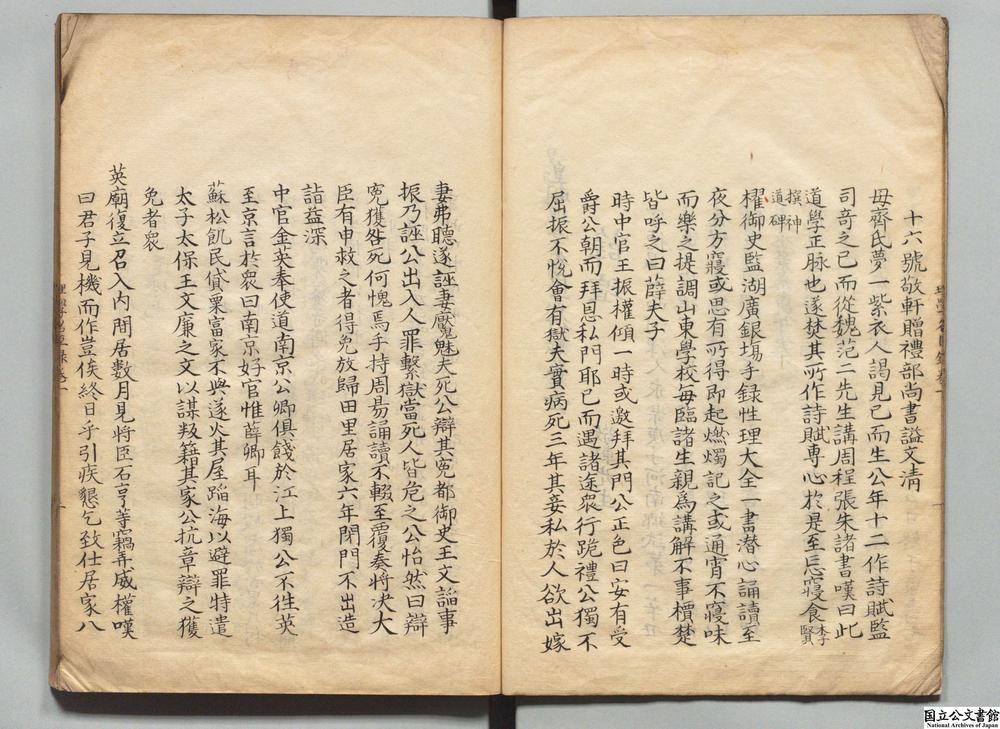 十六號敬軒贈禮部尚書謚文清
母齊氏夢一紫衣人謁見已而生公年十二作詩賦監
司奇之已而從魏范二先生講周程張朱諸書嘆曰此
道學正脉也遂焚其所作詩賦專心於是至忘寢食李賢
撰神道碑
櫂御史監湖廣銀場手録性理大全一書潜心誦讀至
夜分方寢或思有所得即起燃燭記之或通宵不寢味
而樂之提調山東學校每臨諸生親為講解不事檟楚
皆呼之曰薛夫子
時中官王振權傾一時或邀拜其門公正色曰安有受
爵公朝而拜恩私門耶已而遇諸途衆行跪禮公獨不
屈振不悅會有獄夫實病死三年其妾私於人欲出嫁
妻弗聽遂誣妻魘魅夫死公辯其寃都御史王文謟事
振乃誣公出入人罪繫獄當死人皆危之公怡然曰辯
寃獲咎死何愧焉手持周易誦讀不輟至覆奏將决大
臣有申救之者得免放歸田里居家六年閉門不出造
詣益深
中官金英奉使道南京公卿俱餞於江上獨公不往英
至京言於衆曰南京好官惟薛卿耳
蘇松飢民貸粟富家不與遂火其屋蹈海以避罪特遣
太子太保王文廉之文以謀叛籍其家公抗章辯之獲
免者衆
英廟復立召入内閣居數月見將臣石亨等竊弄威權嘆
曰君子見機而作豈俟終日乎引疾懇乞致仕居家八
国立公文書館
National Archives of Japan